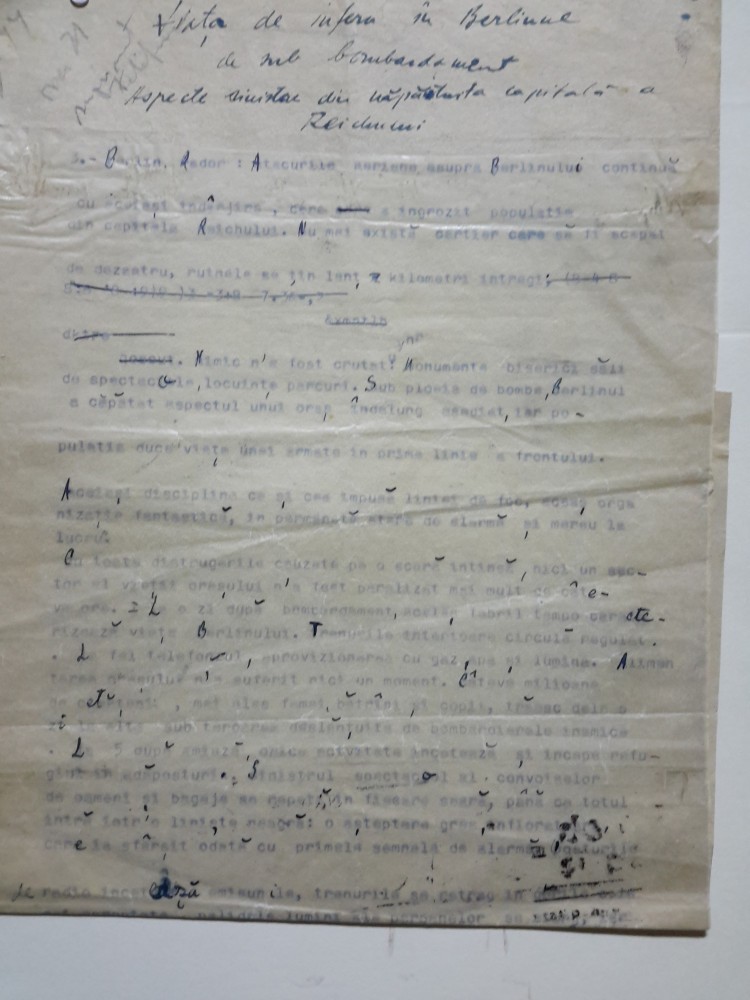 Viața de infern în Berlinul
de sub bombardament
Aspecte sinistre din năpăstuita capitală a
Reichului
3.- Berlin. Rador : Atacurile aeriene asupra Berlinului continuă
cu aceiași îndârjire, care a îngrozit populația
din capitala Reichului. Nu mai există cartier care să fi scăpat
de dezastru, ruinele se țin lanț kilometri întregi;
Nimic n'a fost cruțat: Monumente biserici săli
de spectacole, locuințe parcuri. Sub ploaia de bombe, Berlinul
a căpătat aspectul unui oraș îndelung asediat, iar po-
pulația duce viața unei armate in prima linie a frontului.
Aceiași disciplina ca și cea impusă liniei de foc, aceaș orga
nizație fantastică, in permanetă stare de alarmă și mereu la
lucru.
Cu toate distrugerile cauzate pe o scară întinsă, nici un sec-
tor al vieții orașului n'a fost paralizat mai mult de câte-
va ore. L a zi după bombardament, acelaș febril tempo caracte-
rizează viața Berlinului. Trenurile interioare circulă regulat.
. L fel telefonul, aprovizionarea cu gaz, apă și lumina. Alimen
tarea orașului n'a suferit nici un moment. Câteva milioane
de cetățeni, mai ales femei, bătrîni și copii, trăesc dela o
zi la alta sub teroarea deslănțuită de bombardierele inamice
. La 5 după amiază, orice activitate încetează și începe refu-
giul in adăposturi. Sinistrul spectacol al convoaielor
de oameni și bagaje se repetă in fiecare seară, până ce totul
intră intr'o liniște neagră: o așteptare grea, înfiorată
care ia sfârșit odată cu primele semnale de alarmă
de radio incetează emisiunile, trenurile se retrag in
palidele lumini ale